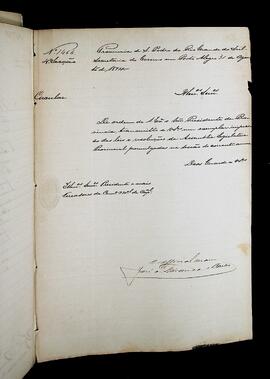 Nº 1464
Provincia de S. Pedro do Rio Grande do Sul
Secretaria do Governo em Porto Alegre 31 de Agos
to de 1874
Circular
Illmos Snrs
De ordem de S. Exª o Snr Presidente da Pro
vincia transmitto a VSas um exemplar impresso
das leis e resoluções da Assembléa Legislativa
Provincial, promulgadas na sessão do corrente anno.
Deos Guarde a VSas
Illmos Snrs Presidente e mais
Vereadores da Camª Mal de